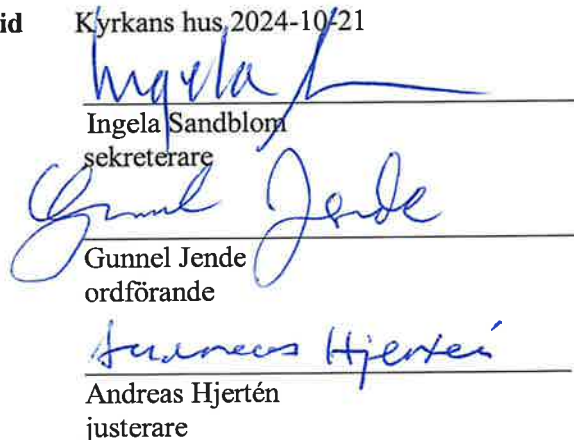 id Kyrkans hus 2024-10-21
Ingela
Ingela Sandblom
sekreterare
Gunnel Jende
Gunnel Jende
ordförande
Andreas Hjertén
Andreas Hjertén
justerare